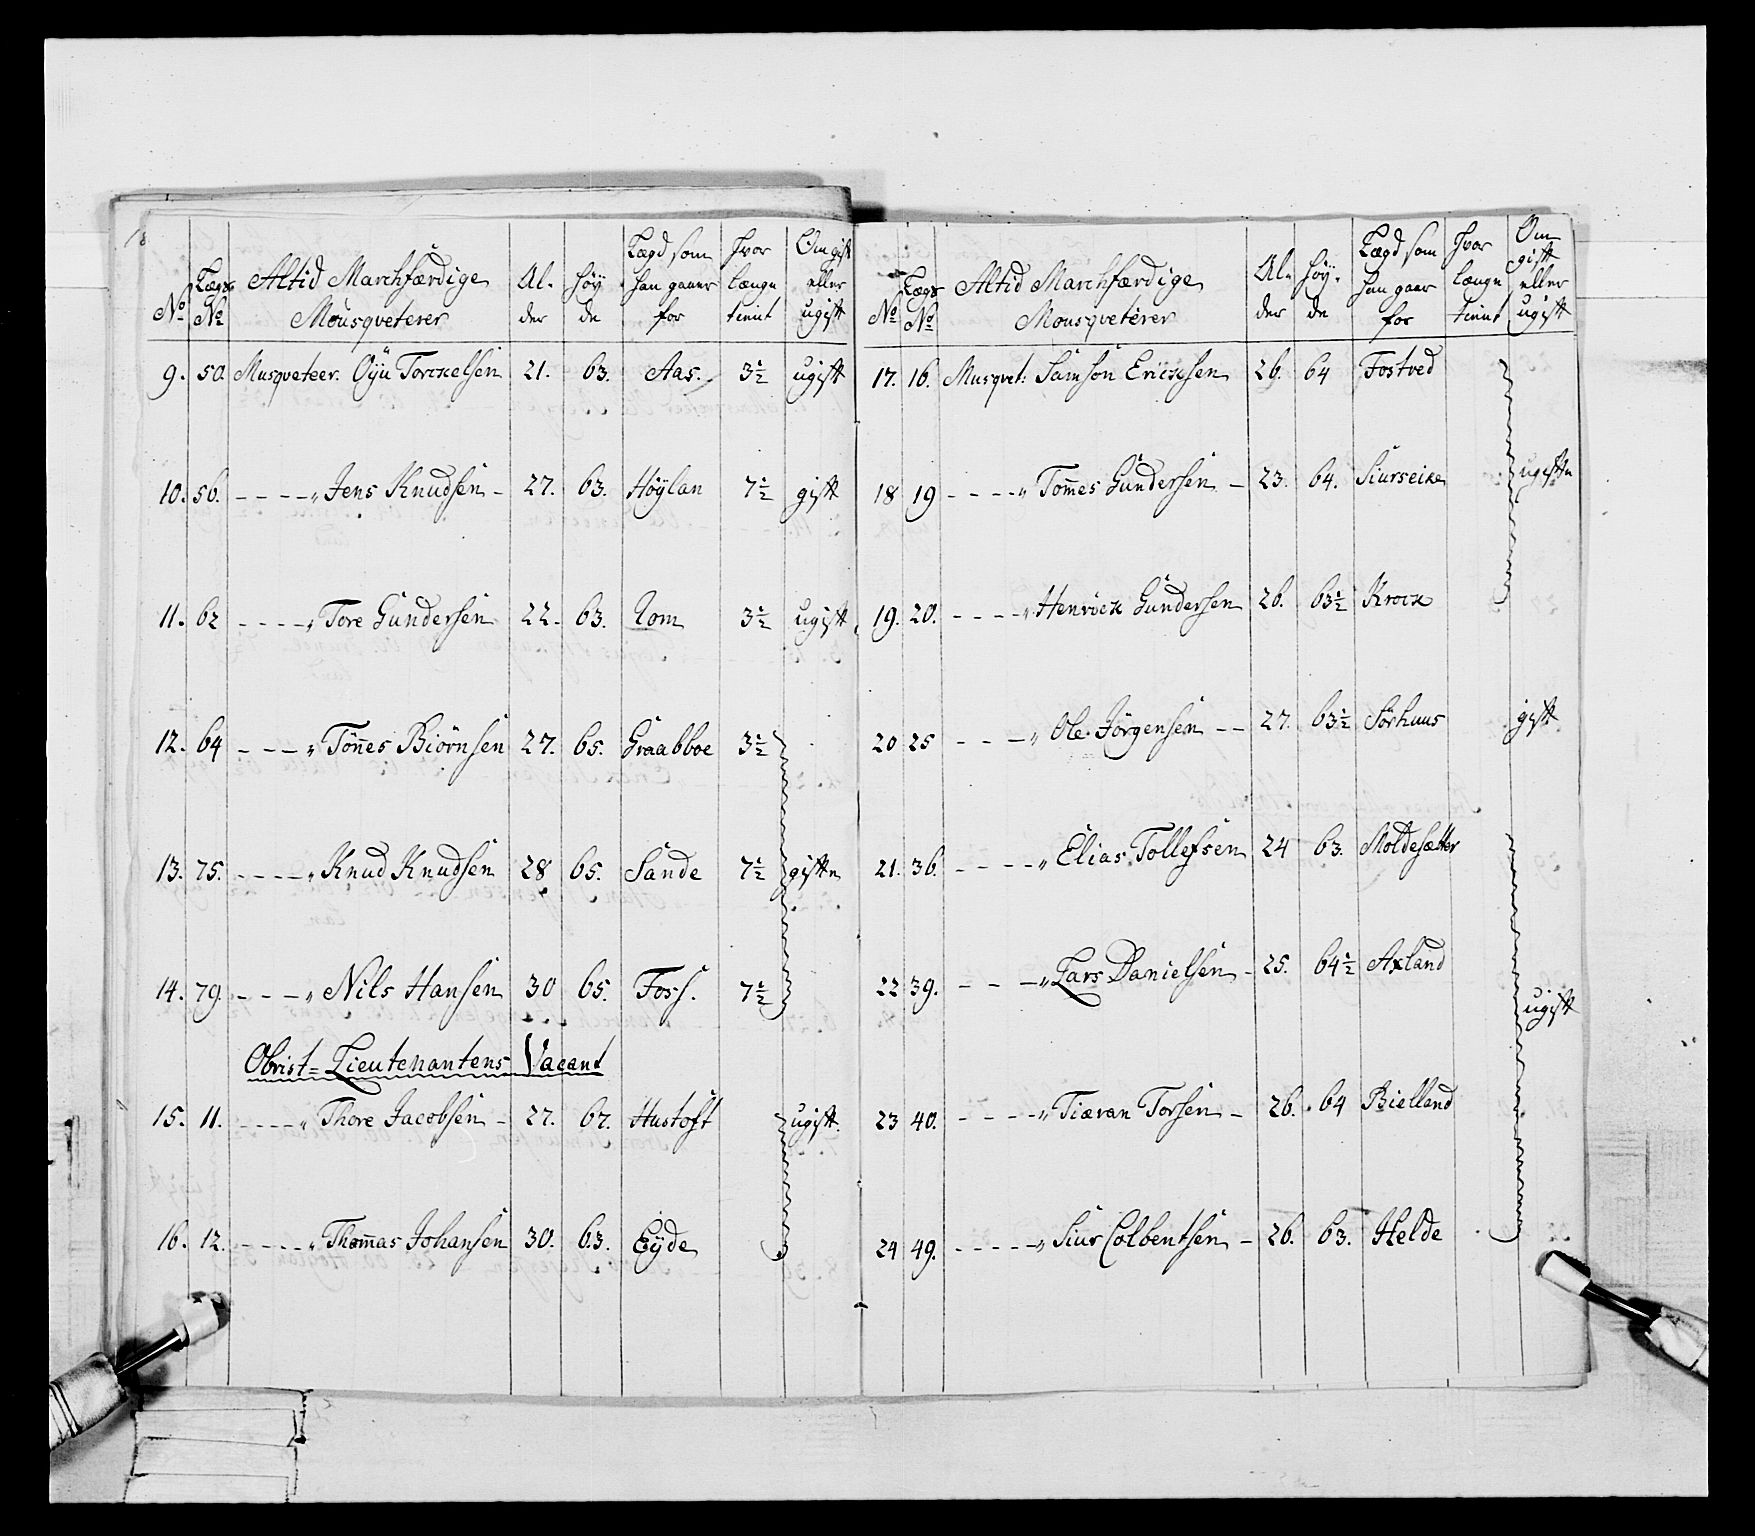 No | Lægs No | Altid Marchfærdige Mousqveterer | Al- der | Høy de | Lægd som han gaaer for | Hvor længe tient | Om gift eller ugift
9. 50. Musqveteer. Oyu Torckelsen 21. 63. Aas. 3½ ugift
10. 56. - - - - " Jens Knudsen - 27. 63. Höylan 7½ gift
11. 62 - - - - " Tore Gundersen 22. 63. Lom 3½ ugift
12. 64 - - - " Tönnes Biörnsen 27. 65. Graabboe 3½
13. 75. - - - - " Knud Knudsen 28 65. Sande 7½ giftn
14. 79. - - - " Nils Hansen 30 65. Foss. 7½
Obrist= Lieutenantens Vacant
15. 11. - - - - " Thore Jacobsen - 27. 67. Hustoft ugift.
16. 12. - - - - " Thommas Johansen 30. 63. Eyde
No | Lægs No | Altid Marchfærdige Mousqveterer | Al- der | Høy- de | Lægd som han gaar for | Hvor længe tient | Om gift eller ugift
17. 16. Musqvet: Samson Ericksen 26. 64 Fostved
18 19 - - - - " Tommes Gundersen - 23. 64. Siurseike ugiftn
19. 20. - - - - " Henrick Gundersen 26. 63½ Krock
20 25 - - - " Ole Jörgensen - - 27. 63½ Sörhuus gift
21. 36. - - - - " Elias Tollefsen 24 63. Moldesætter
22 39. - - - " Lars Danielsen - 25. 64½ Axland ugift
23 40. - - - - " Tiæran Torsen - 26. 64 Bielland
24 49. - - - - - " Siur Colbentsen - 26. 63. Helde